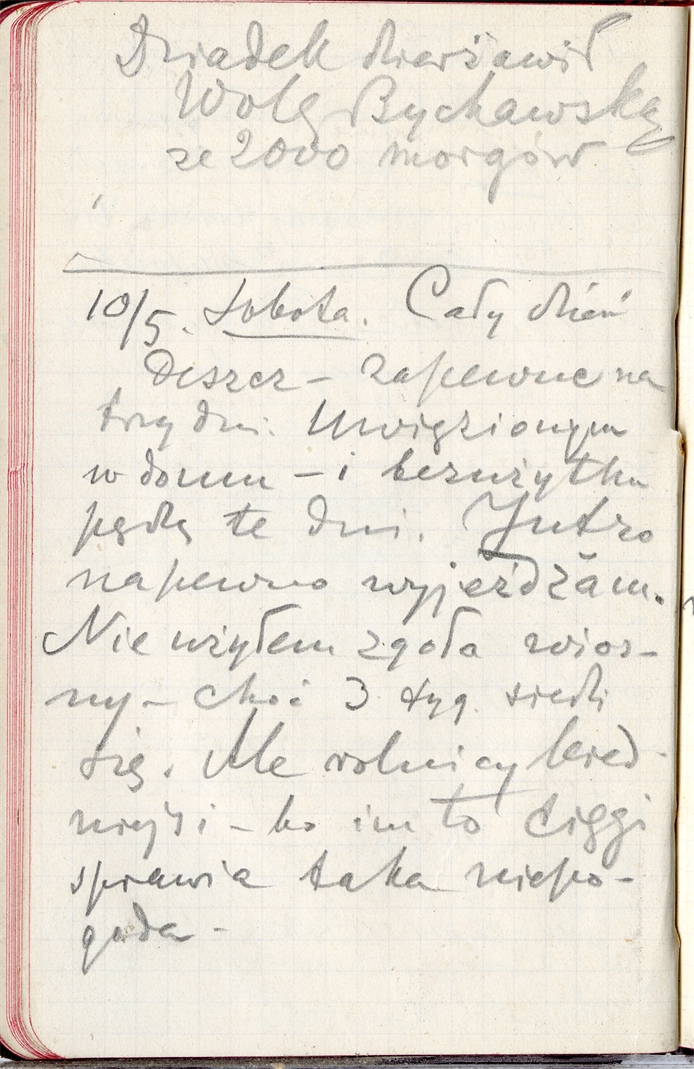 Dziadek dzierżawił
Wolę Bychawską
ze 2000 morgów
10/5. Sobota. Cały dzień
Deszcz – zapewne na
trzy dni. Uwięzionym
w domu – i bezużytku
pędzę te dni. Jutro
napewno wyjeżdżam.
Nie użyłem zgoła wios-
ny – choć 3 tyg. siedzi
się. Ale rolnicy bied-
niejsi – bo im to cięgi
sprawia taka niepo-
goda –